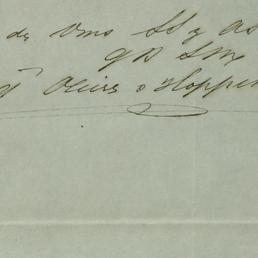 de Vms SS y as
q B S M
Oliver o Hoppen